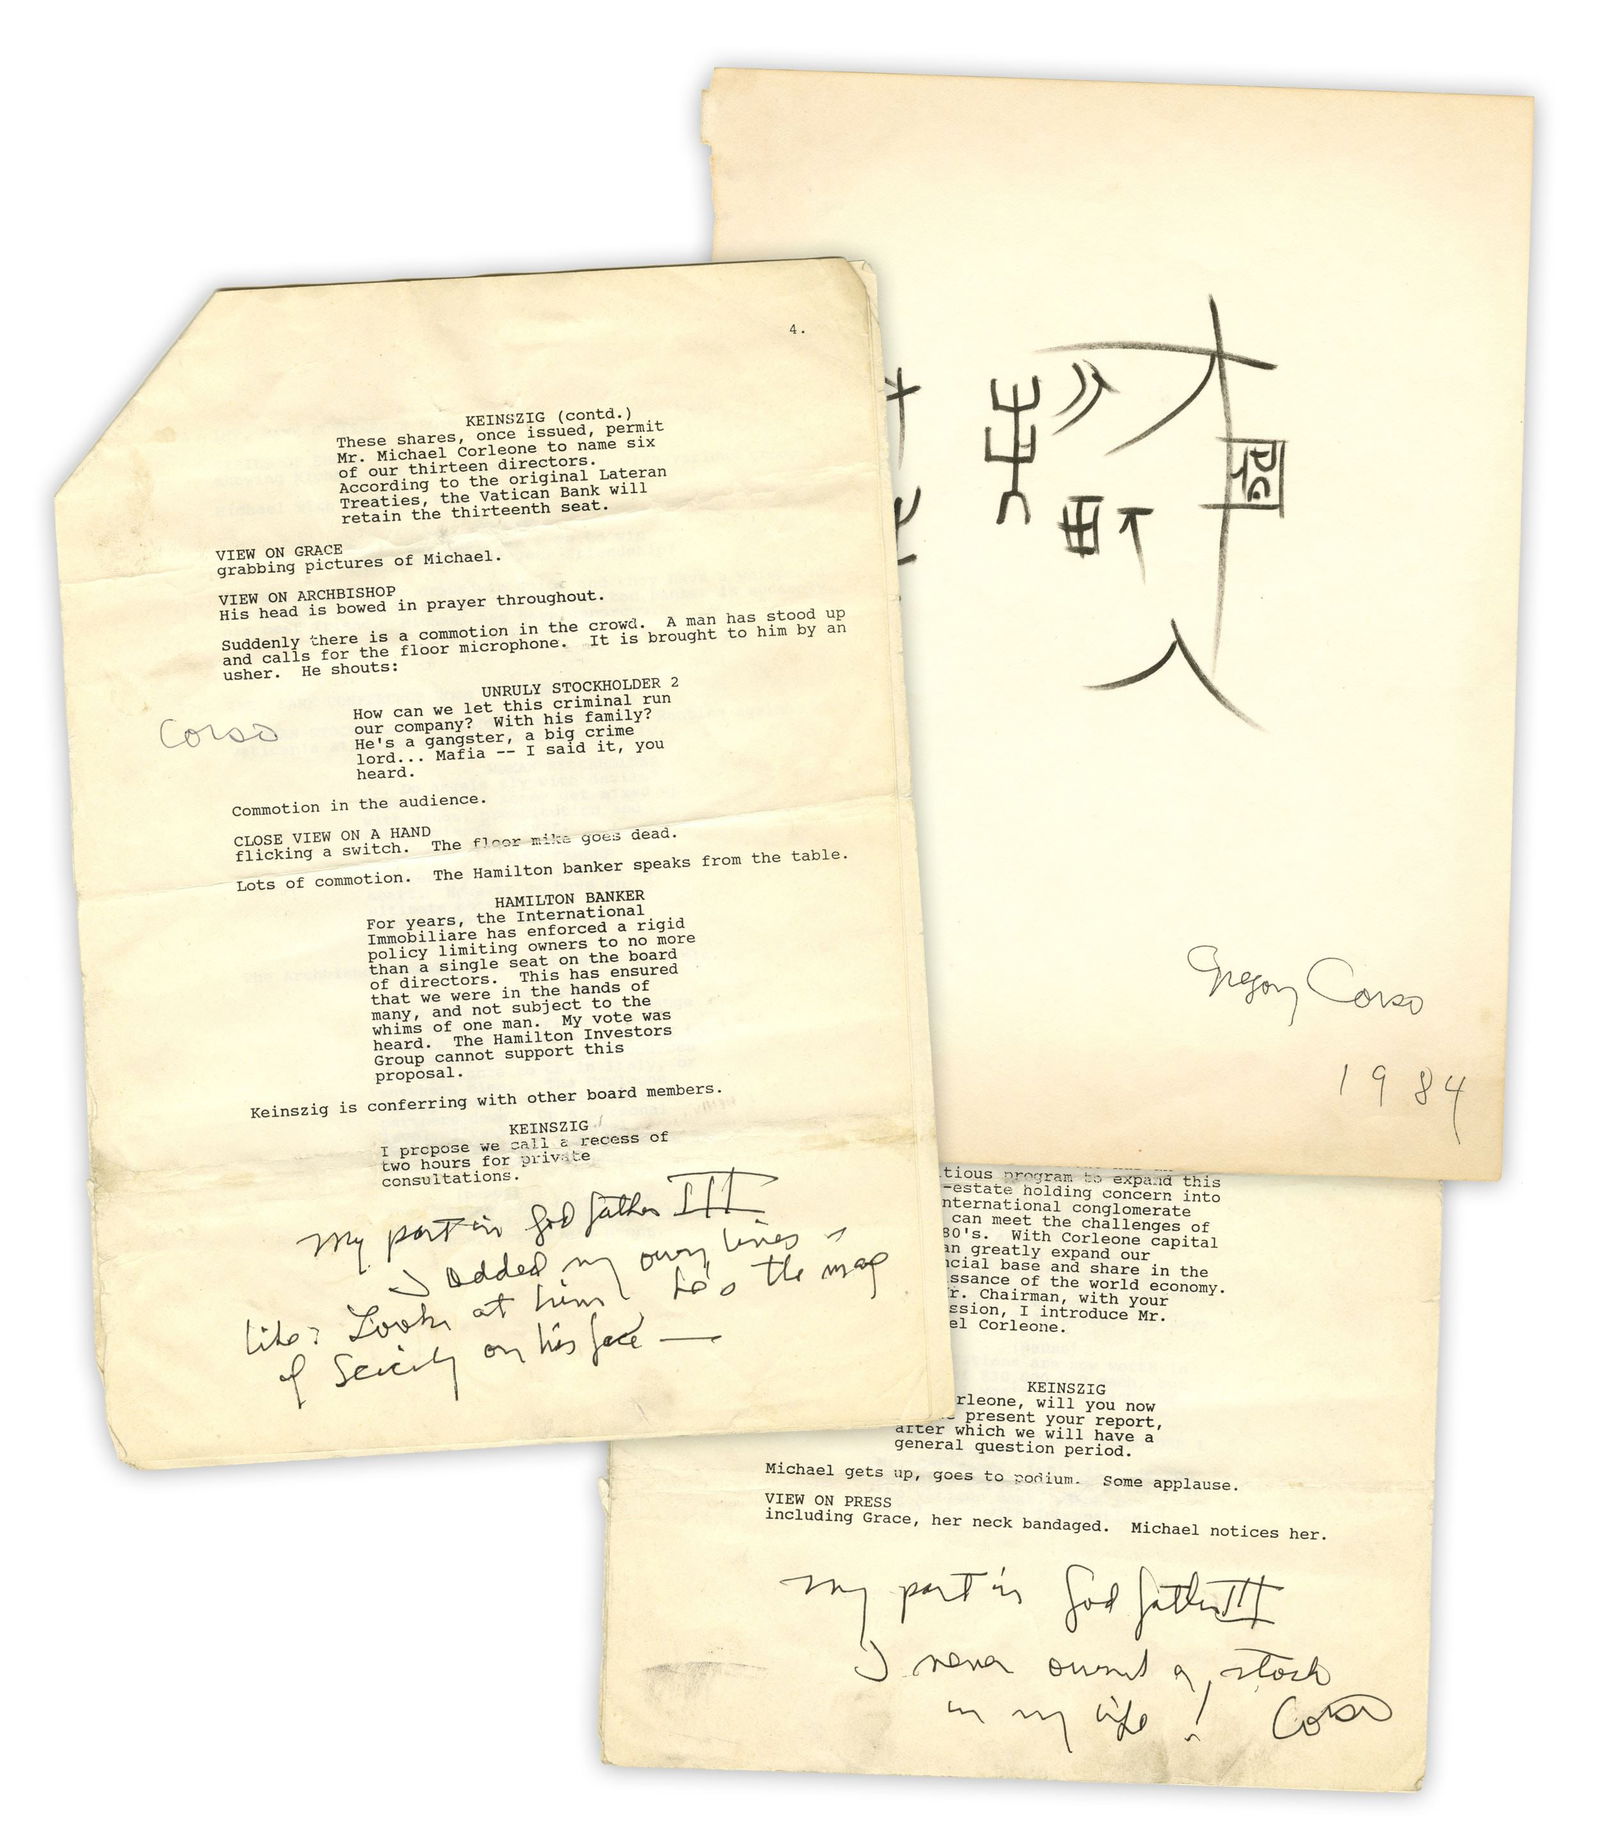 4.
KEINSZIG (contd.)
These shares, once issued, permit
Mr. Michael Corleone to name six
of our thirteen directors.
According to the original Lateran
Treaties, the Vatican Bank will
retain the thirteenth seat.
VIEW ON GRACE
grabbing pictures of Michael.
VIEW ON ARCHBISHOP
His head is bowed in prayer throughout.
Suddenly there is a commotion in the crowd. A man has stood up
and calls for the floor microphone. It is brought to him by an
usher. He shouts:
UNRULY STOCKHOLDER 2
Corso
How can we let this criminal run
our company? With his family?
He's a gangster, a big crime
lord... Mafia -- I said it, you
heard.
Commotion in the audience.
CLOSE VIEW ON A HAND
flicking a switch. The floor mike goes dead.
Lots of commotion. The Hamilton banker speaks from the table.
HAMILTON BANKER
For years, the International
Immobiliare has enforced a rigid
policy limiting owners to no more
than a single seat on the board
of directors. This has ensured
that we were in the hands of
many, and not subject to the
whims of one man. My vote was
heard. The Hamilton Investors
Group cannot support this
proposal.
Keinszig is conferring with other board members.
KEINSZIG
I propose we call a recess of
two hours for private
consultations.
My part in God father III
I added my own lines -
like: Look at him, he's the map
of Scicily on his face —
Gregory Corso
1984
tious program to expand this
-estate holding concern into
nternational conglomerate
can meet the challenges of
80's. With Corleone capital
an greatly expand our
ncial base and share in the
ssance of the world economy.
r. Chairman, with your
ssion, I introduce Mr.
el Corleone.
KEINSZIG
rleone, will you now
present your report,
after which we will have a
general question period.
Michael gets up, goes to podium. Some applause.
VIEW ON PRESS
including Grace, her neck bandaged. Michael notices her.
My part in God father III
I never owned a stock
in my life! Corso